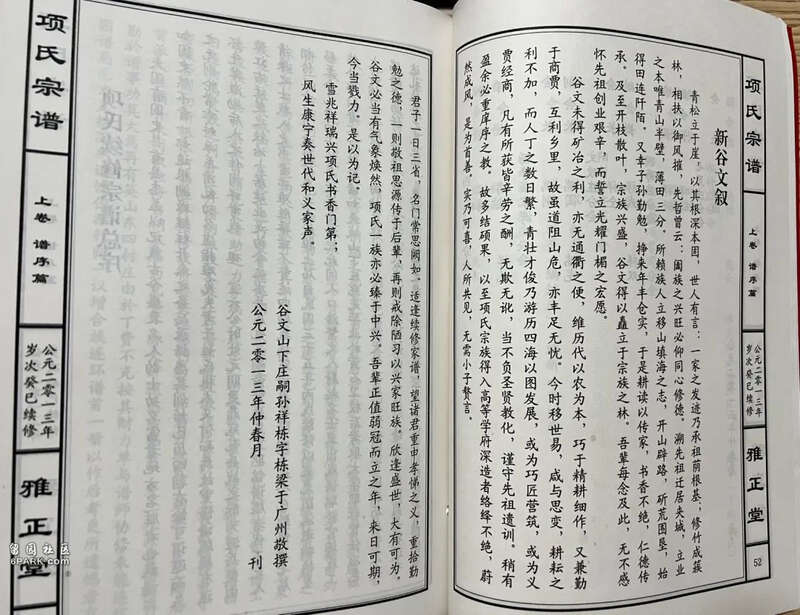 项氏宗谱
上卷 谱序篇
公元二零一三年
岁次癸巳续修
雅正堂
52
新谷文叙
青松立于崖，以其根深本固，世人有言：一家之发迹乃承祖荫根基，修竹成簇
林，相扶以御风摧，先哲曾云：阖族之兴旺必仰同心修德。溯先祖迁居夹城，立业
之本唯青山半壁，薄田三分，所赖族人立移山填海之志，开山辟路，斫荒围垦，始
得田连阡陌。又幸子孙勤勉，挣来年丰仓实，于是耕读以传家，书香不绝，仁德传
承。及至开枝散叶，宗族兴盛，谷文得以矗立于宗族之林。吾辈每念及此，无不感
怀先祖创业艰辛，而誓立光耀门楣之宏愿。
谷文未得矿冶之利，亦无通衢之便，维历代以农为本，巧于精耕细作，又兼勤
于商贾，互利乡里，故虽道阻山危，亦丰足无忧。今时移世易，咸与思变，耕耘之
利不加，而人丁之数日繁，青壮才俊乃游历四海以图发展，或为巧匠营筑，或为义
贾经商，凡有所获皆辛劳之酬，无欺无讹，当不负圣贤教化，谨守先祖遗训。稍有
盈余必重庠序之教。故多结硕果，以至项氏宗族得入高等学府深造者络绎不绝，蔚
然成风，是为首善。实乃可喜，人所共见，无需小子赘言。
君子一日三省，名门常思阙如。适逢续修家谱，望诸君重申孝悌之义，重拾勤
勉之德，一则敬祖思源传于后辈，再则戒除陋习以兴家旺族。欣逢盛世，大有可为。
谷文必当有气象焕然，项氏一族亦必臻于中兴。吾辈正值弱冠而立之年，来日可期，
今当戮力。是以为记。
雪兆祥瑞兴项氏书香门第；
风生康宁奏世代和义家声。
谷文山下庄嗣孙祥栋字栋梁于广州敬撰
公元二零一三年仲春月 刊
项氏宗谱
上卷 谱序篇
公元二零一三年
岁次癸巳续修
雅正堂
留园社区
6PARK.COM